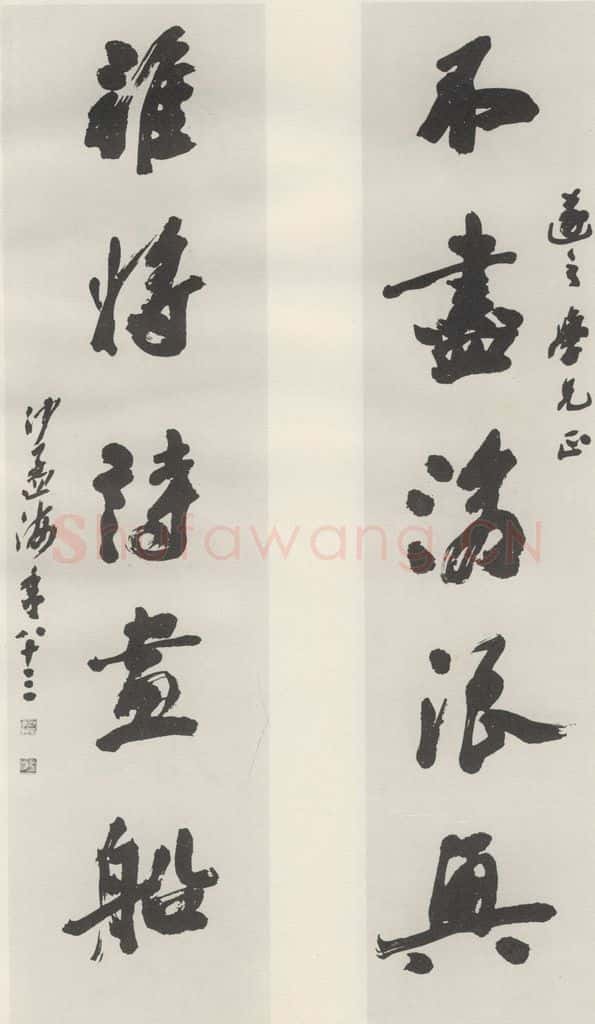 不盡滄浪興
遂之學兄正
誰將詩畫船
沙孟海年八十三
Shufawang.CN